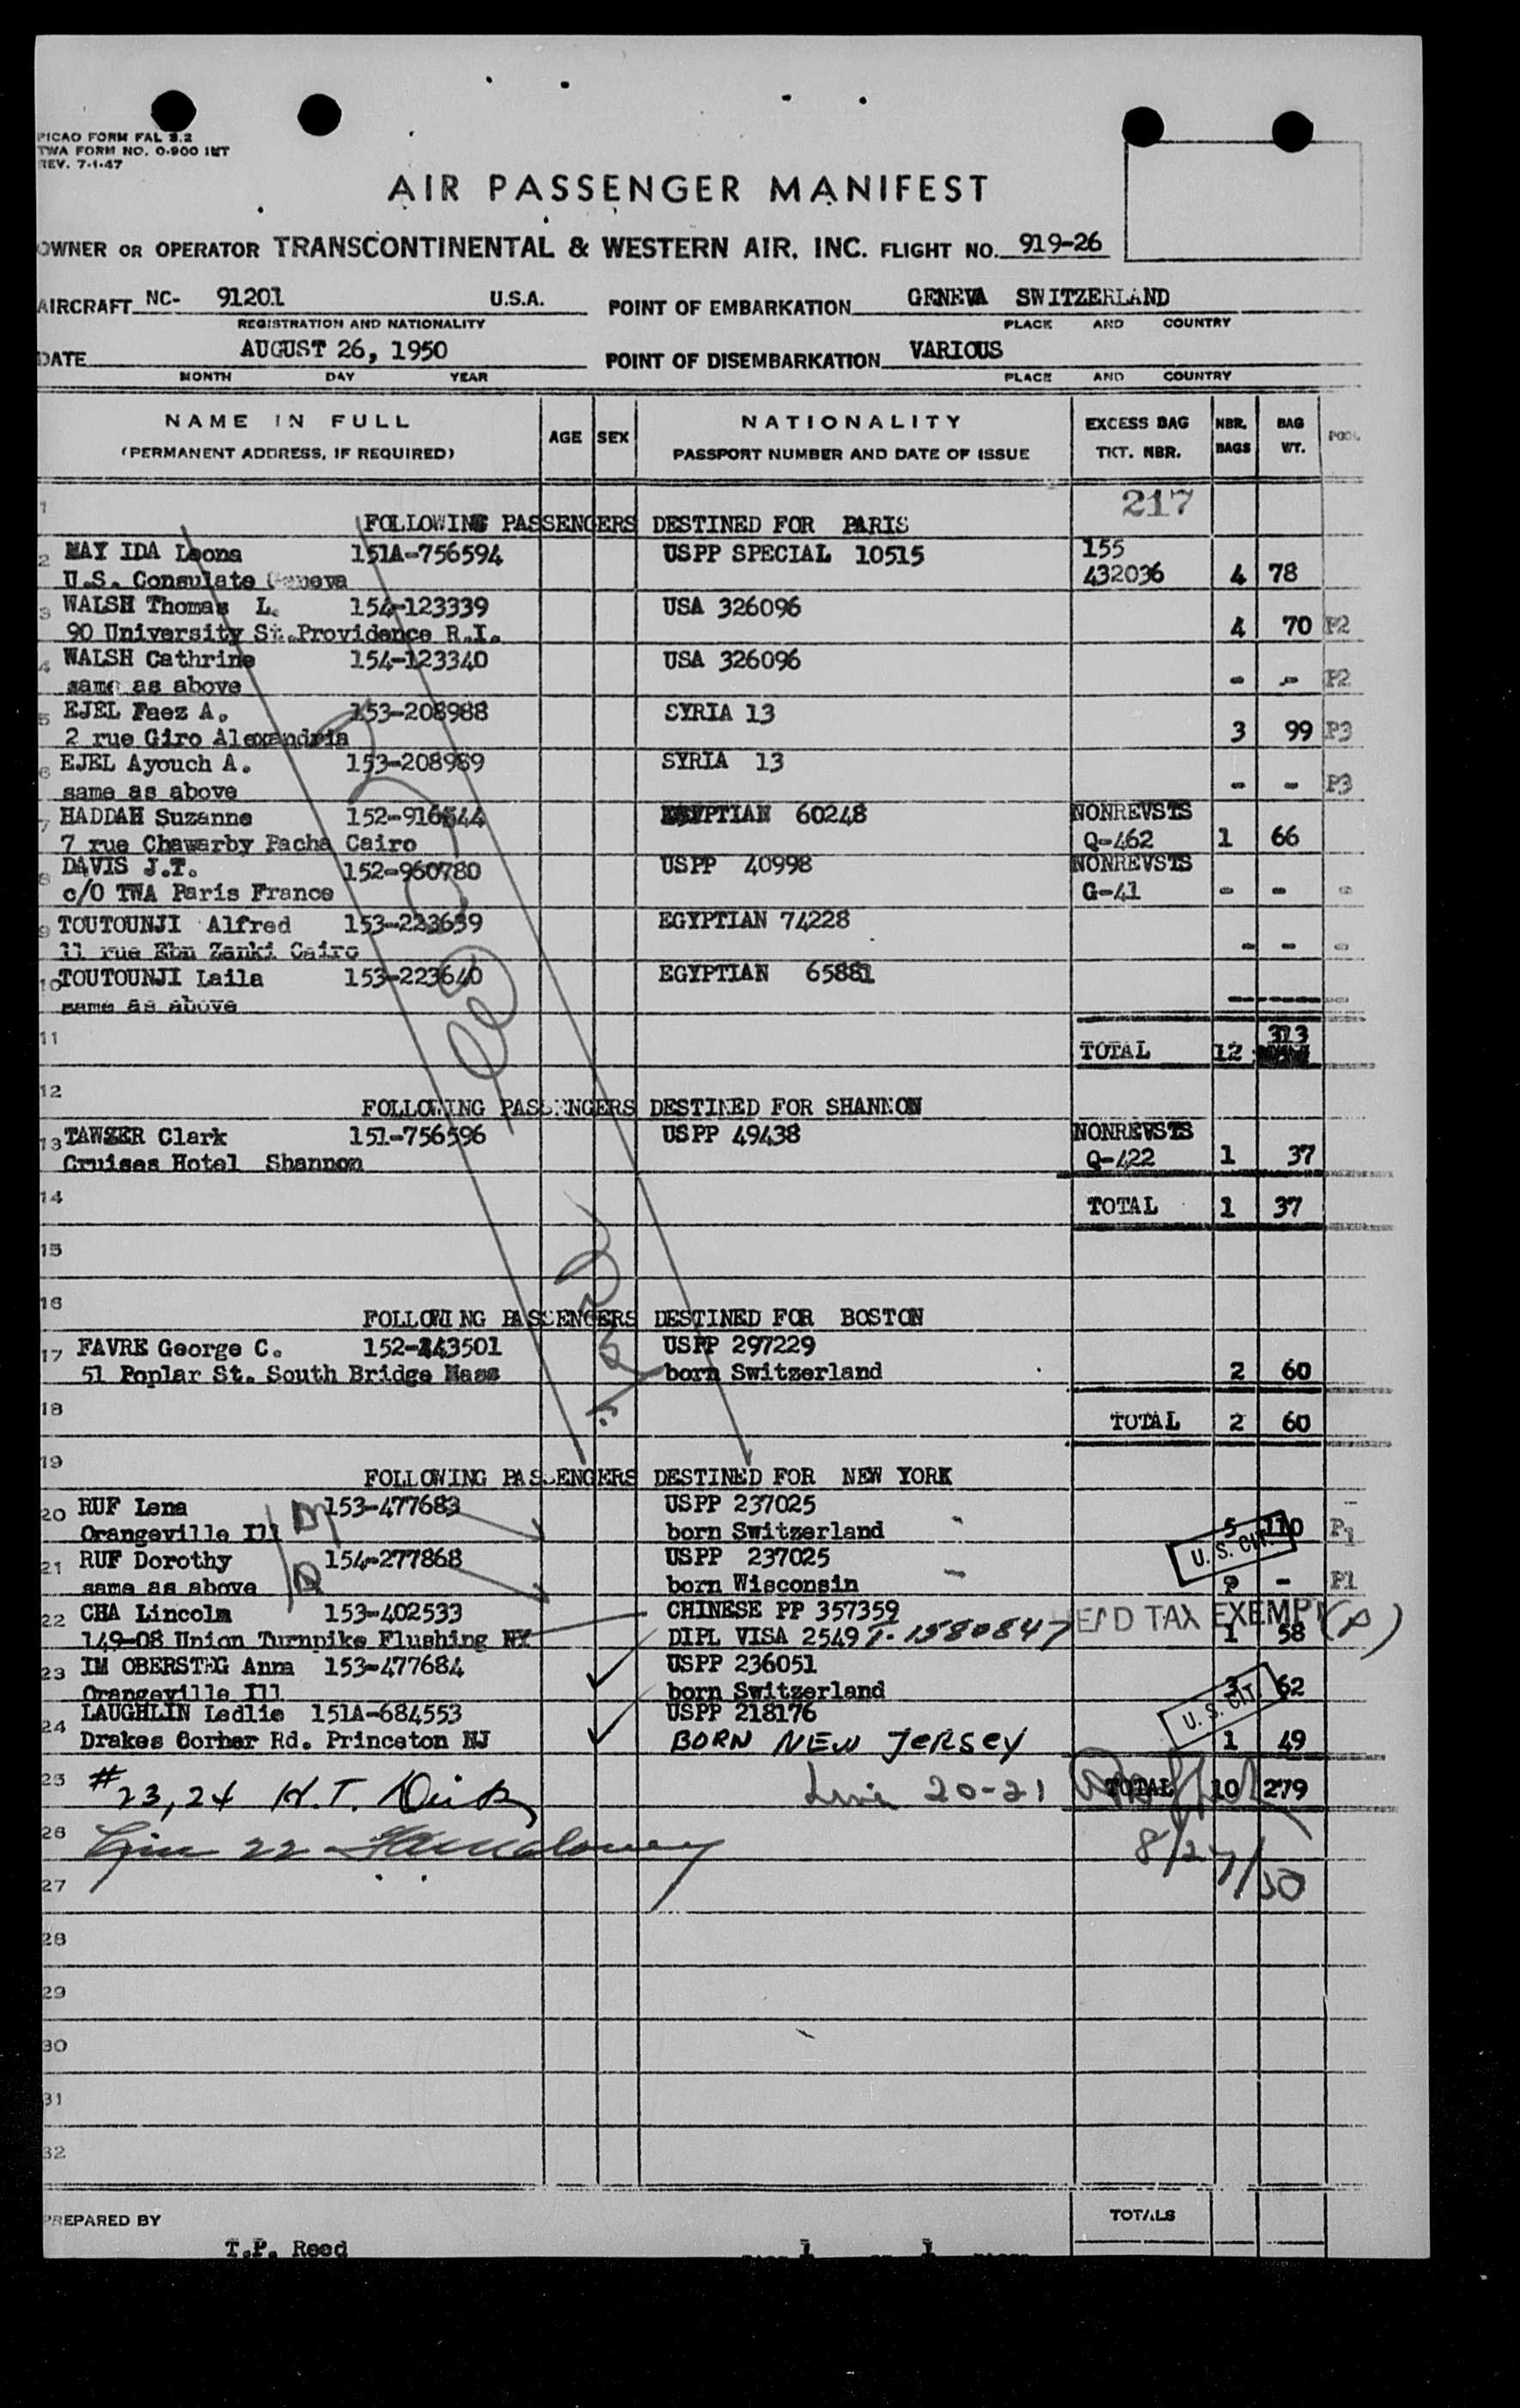 PICAO FORM FAL 3.2
TWA FORM NO. 0-900 INT
REV. 7-1-47
AIR PASSENGER MANIFEST
OWNER OR OPERATOR TRANSCONTINENTAL & WESTERN AIR, INC. FLIGHT NO. 919-26
AIRCRAFT NC- 91201 U.S.A. POINT OF EMBARKATION GENEVA SWITZERLAND
REGISTRATION AND NATIONALITY PLACE AND COUNTRY
DATE AUGUST 26, 1950 POINT OF DISEMBARKATION VARIOUS
MONTH DAY YEAR PLACE AND COUNTRY
NAME IN FULL AGE SEX NATIONALITY EXCESS BAG NBR. BAG POOL
(PERMANENT ADDRESS, IF REQUIRED) PASSPORT NUMBER AND DATE OF ISSUE TKT. NBR. BAGS WT.
1 217
FOLLOWING PASSENGERS DESTINED FOR PARIS
2 MAY IDA Leona 151A-756594 USPP SPECIAL 10515 155
U.S. Consulate Geneva 432036 4 78
3 WALSH Thomas L. 154-123339 USA 326096
90 University St. Providence R.I. 4 70 P2
4 WALSH Cathrine 154-123340 USA 326096
same as above - - P2
5 EJEL Faez A. 153-208988 SYRIA 13
2 rue Giro Alexandria 3 99 P3
6 EJEL Ayouch A. 153-208989 SYRIA 13
same as above - - P3
7 HADDAH Suzanne 152-916544 EGYPTIAN 60248 NONREVSTS
7 rue Chawarby Pacha Cairo Q-462 1 66
8 DAVIS J.T. 152-960780 USPP 40998 NONREVSTS
c/O TWA Paris France G-41 - - -
9 TOUTOUNJI Alfred 153-223639 EGYPTIAN 74228
11 rue Ebn Zanki Cairo - - -
10 TOUTOUNJI Laila 153-223640 EGYPTIAN 65881
same as above
11 313
TOTAL 12
12
FOLLOWING PASSENGERS DESTINED FOR SHANNON
13 TAWZER Clark 151-756596 USPP 49438 NONREVSTS
Cruises Hotel Shannon Q-422 1 37
14 TOTAL 1 37
15
16
FOLLOWING PASSENGERS DESTINED FOR BOSTON
17 FAVRE George C. 152-443501 USPP 297229
51 Poplar St. South Bridge Mass born Switzerland 2 60
18 TOTAL 2 60
19
FOLLOWING PASSENGERS DESTINED FOR NEW YORK
20 RUF Lena 153-477683 USPP 237025
Orangeville Ill born Switzerland 5 110 P1
21 RUF Dorothy 154-277868 USPP 237025 U. S. CIT.
same as above born Wisconsin - P1
22 CHA Lincoln 153-402533 CHINESE PP 357359 HEAD TAX EXEMPT
149-08 Union Turnpike Flushing NY DIPL VISA 2549 T-1580847 1 58
23 IM OBERSTEG Anna 153-477684 USPP 236051
Orangeville Ill born Switzerland 3 62
24 LAUGHLIN Ledlie 151A-684553 USPP 218176 U. S. CIT
Drakes Corner Rd. Princeton NJ BORN NEW JERSEY 1 49
25 #23,24 H.T. 20-21 TOTAL 10 279
26 22 8/27/50
27
28
29
30
31
32
PREPARED BY TOTALS
T.P. Reed 1 1